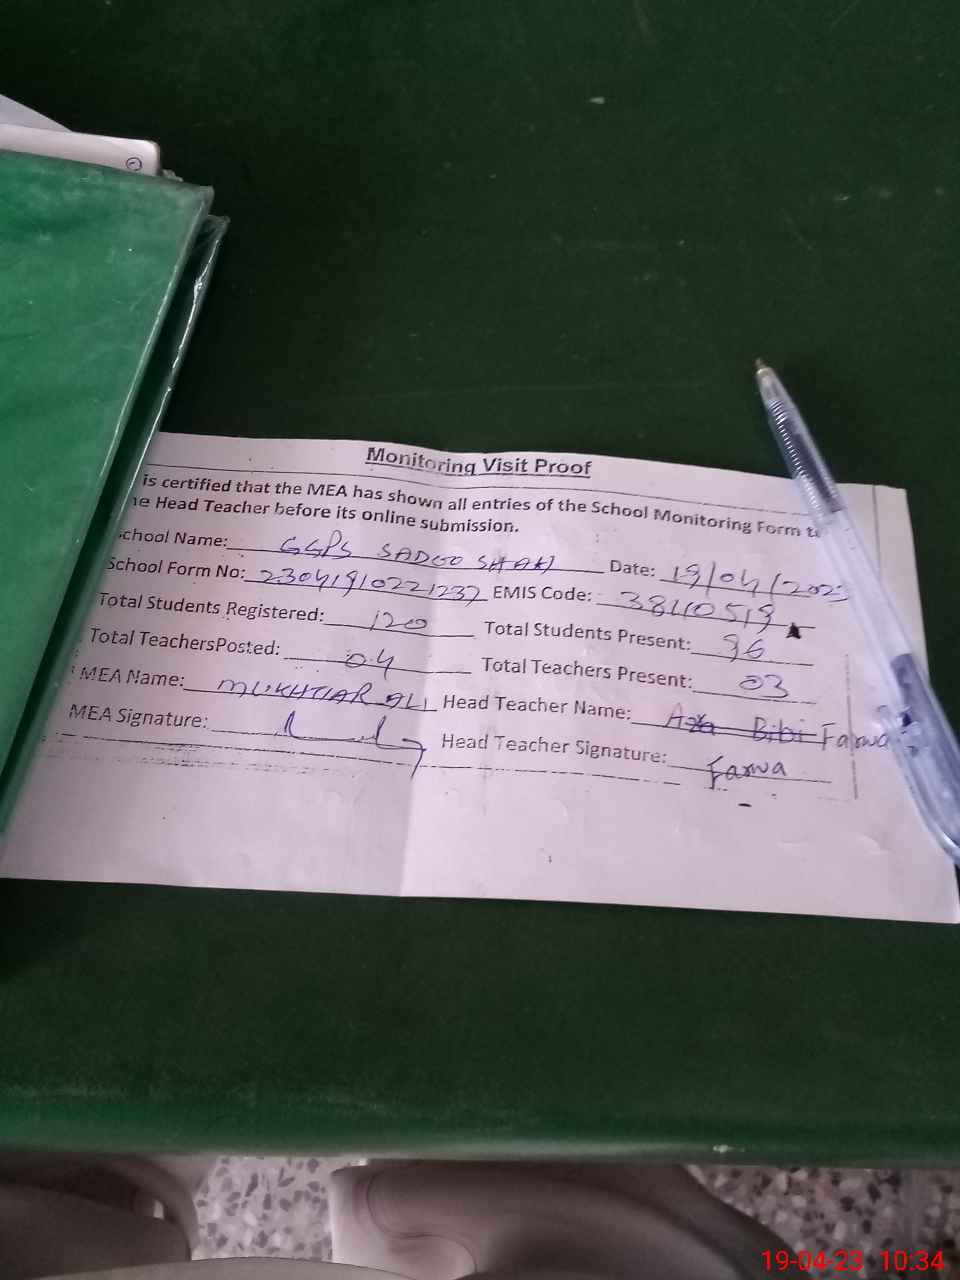 Monitoring Visit Proof
is certified that the MEA has shown all entries of the School Monitoring Form to
he Head Teacher before its online submission.
School Name: GGPS SADOO SHAH Date: 19/04/2023
School Form No: 23041910221237 EMIS Code: 38110519
Total Students Registered: 120 Total Students Present: 96
Total TeachersPosted: 04 Total Teachers Present: 03
MEA Name: MUKHTIAR ALI Head Teacher Name: Bibi Farwa
MEA Signature: Head Teacher Signature: Farwa
19-04-23 10:34